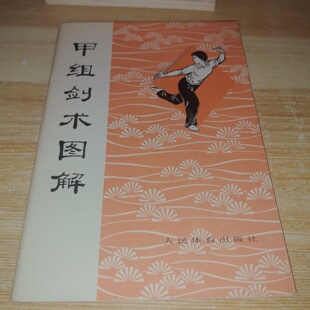 甲组剑术图解
人民体育出版社